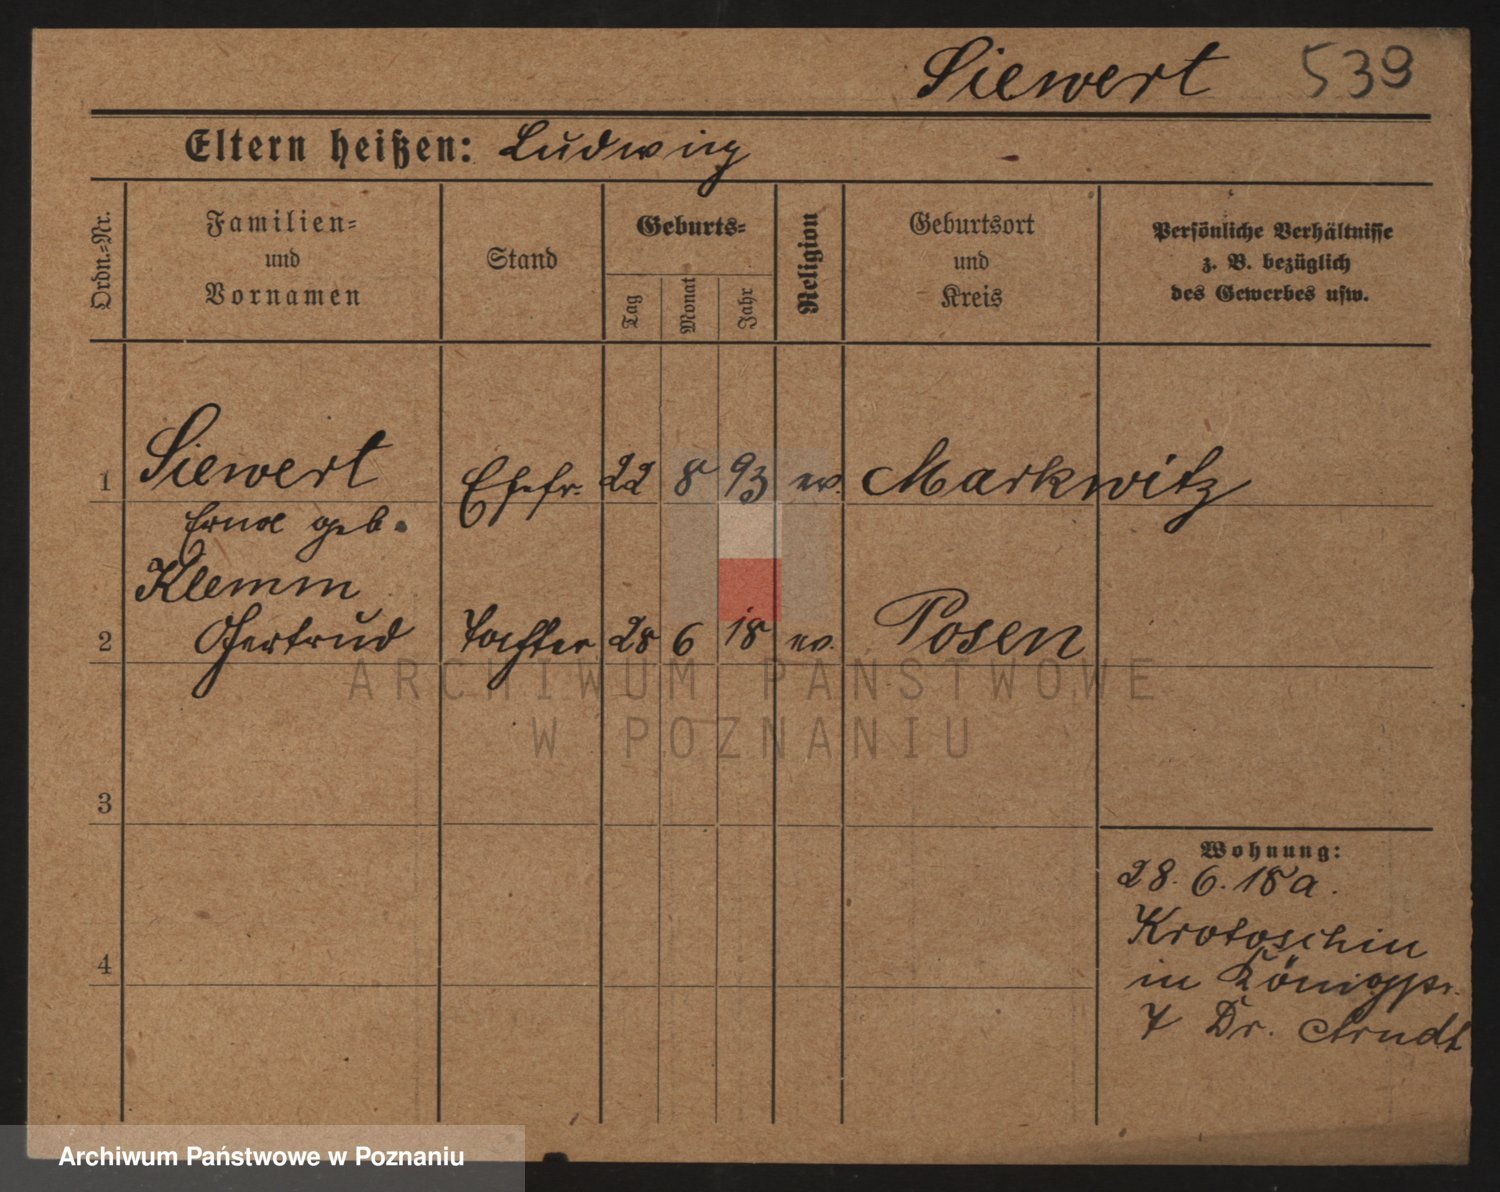 Siewert 539
Eltern heißen: Ludwig
Ordn.-Nr.
Familien- und Vornamen
Stand
Geburts-
Tag
Monat
Jahr
Religion
Geburtsort und Kreis
Persönliche Verhältnisse z. B. bezüglich des Gewerbes usw.
1 Siewert Ehefr. 22 8 93 ev. Markwitz
Erna geb.
Klemm
2 Gertrud Tochter 28 6 18 ev. Posen
ARCHIWUM PAŃSTWOWE
W POZNANIU
3
Wohnung:
28. 6. 18 a.
Krotoschin
4
in Königpr.
7 Dr. Arndt
Archiwum Państwowe w Poznaniu